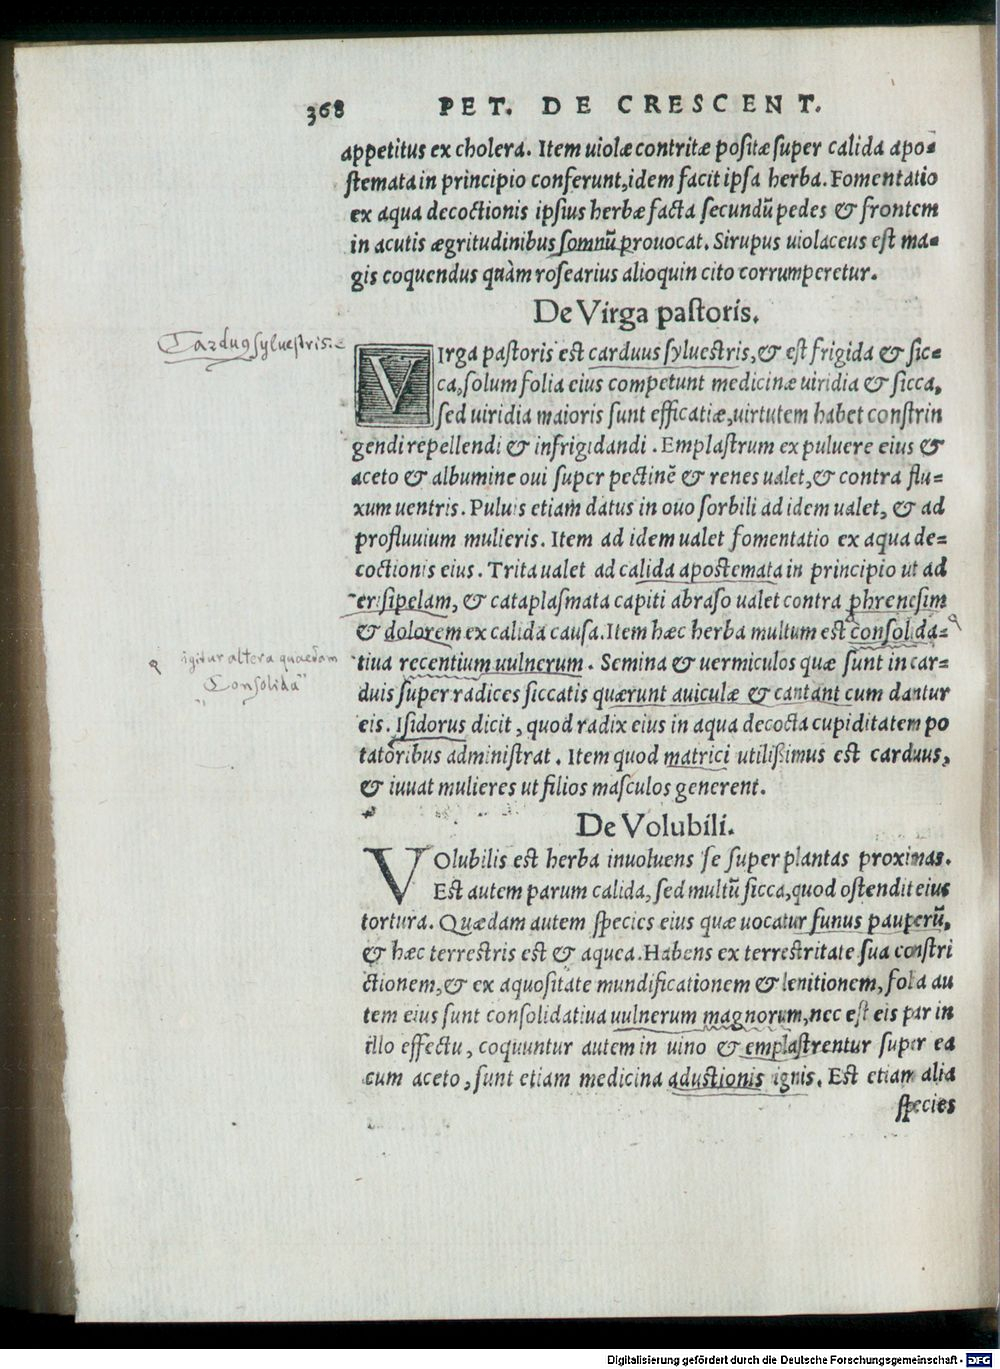 368 PET. DE CRESCENT.
appetitus ex cholera. Item uiolæ contritæ positæ super calida apo⸗
stemata in principio conferunt, idem facit ipsa herba. Fomentatio
ex aqua decoctionis ipsius herbæ facta secundũ pedes & frontem
in acutis ægritudinibus somnũ prouocat. Sirupus uiolaceus est ma⸗
gis coquendus quàm rosearius alioquin cito corrumperetur.
De Virga pastoris.
Carduus sylvestris.
VIrga pastoris est carduus syluestris, & est frigida & sic⸗
ca, solum folia eius competunt medicinæ uiridia & sicca,
sed uiridia maioris sunt efficatiæ, uirtutem habet constrin
gendi repellendi & infrigidandi. Emplastrum ex puluere eius &
aceto & albumine oui super pectinẽ & renes ualet, & contra flu⸗
xum uentris. Puluis etiam datus in ouo sorbili ad idem ualet, & ad
profluuium mulieris. Item ad idem ualet fomentatio ex aqua de⸗
coctionis eius. Trita ualet ad calida apostemata in principio ut ad
erisipelam, & cataplasmata capiti abraso ualet contra phrenesim
& dolorem ex calida causa. Item hæc herba multum est consolida⸗
tiua recentium uulnerum. Semina & uermiculos quæ sunt in car⸗
igitur altera quaedam
Consolida
duis super radices siccatis quærunt auiculæ & cantant cum dantur
eis. Isidorus dicit, quod radix eius in aqua decocta cupiditatem po
tatoribus administrat. Item quod matrici utilissimus est carduus,
& iuuat mulieres ut filios masculos generent.
De Volubili.
VOlubilis est herba inuoluens se super plantas proximas.
Est autem parum calida, sed multũ sicca, quod ostendit eius
tortura. Quædam autem species eius quæ uocatur funus pauperũ,
& hæc terrestris est & aquea. Habens ex terrestritate sua constri
ctionem, & ex aquositate mundificationem & lenitionem, folia au
tem eius sunt consolidatiua uulnerum magnorum, nec est eis par in
illo effectu, coquuntur autem in uino & emplastrentur super ea
cum aceto, sunt etiam medicina adustionis ignis. Est etiam alia
species
Digitalisierung gefördert durch die Deutsche Forschungsgemeinschaft - DFG